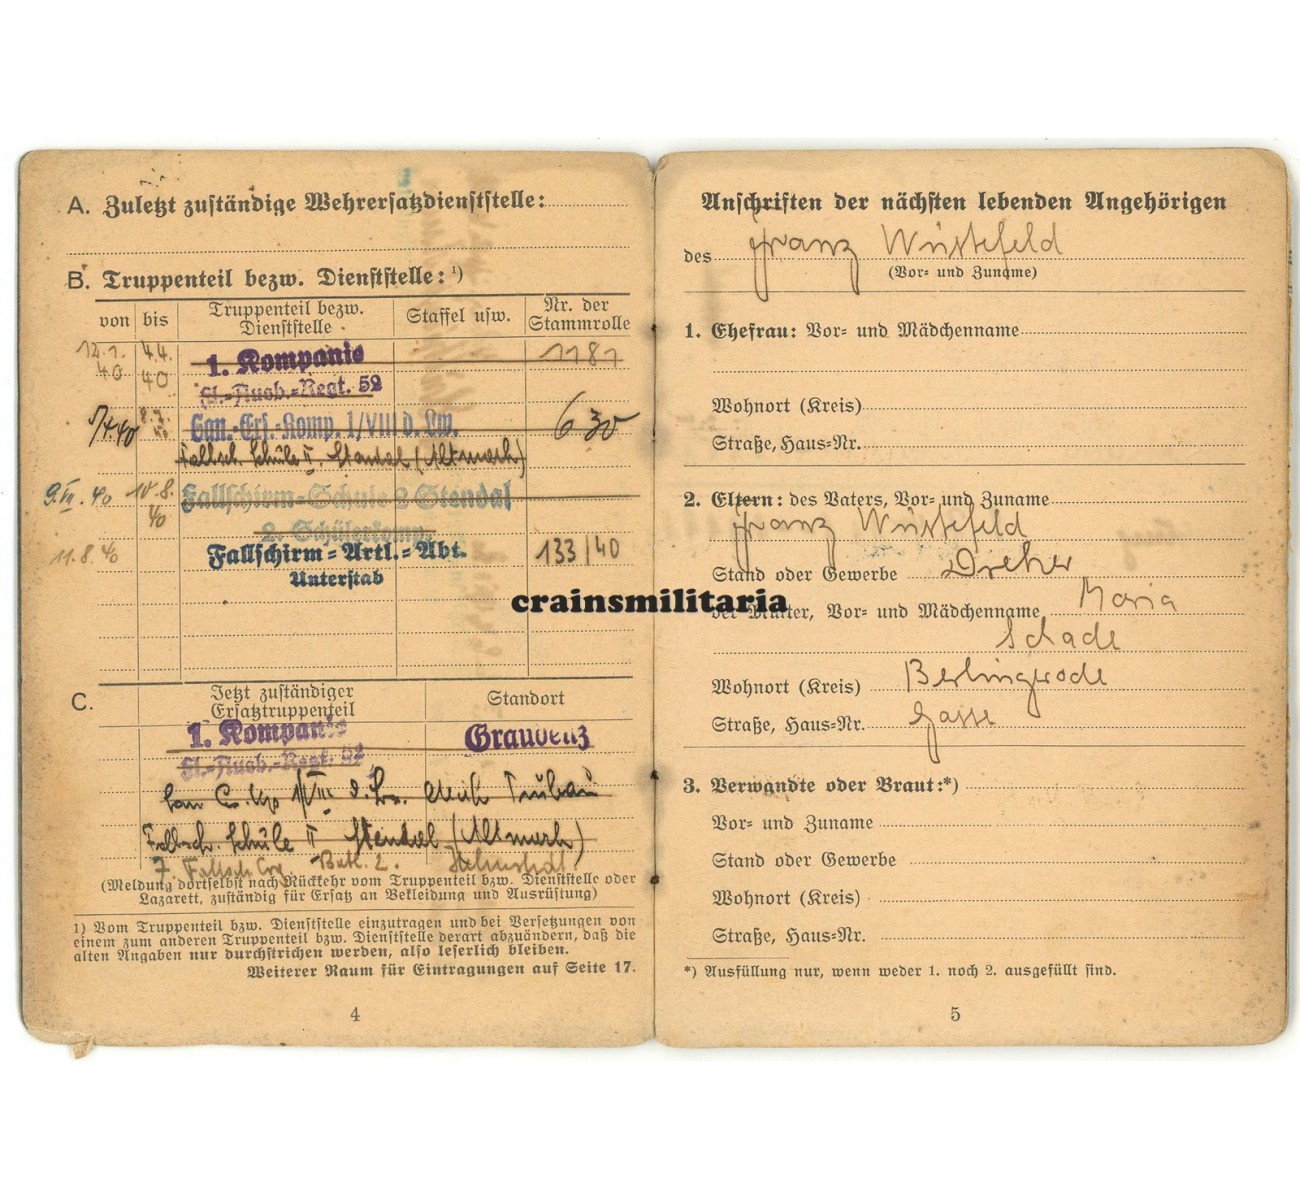 A. Zuletzt zuständige Wehrersatzdienststelle:
B. Truppenteil bezw. Dienststelle: ¹)
von bis Truppenteil bezw. Dienststelle Staffel usw. Nr. der Stammrolle
12.1.40 4.4.40 1. Kompanie 1187
Fl.-Ausb.-Regt. 52
5/4.40 8.7.40 San.-Ers.-Komp. 1/VIII d. Lw. 630
Fallsch. Schule II. Stendal (Altmark)
9.VII.40 10.8.40 Fallschirm-Schule 2 Stendal
2. Schülerkomp.
11.8.40 Fallschirm-Artl.-Abt. 133/40
Unterstab
C. Jetzt zuständiger Ersatztruppenteil Standort
1. Kompanie Graudenz
Fl.-Ausb.-Regt. 52
San 1/VIII d. Lw. Trübau
Fallsch. Schule II Stendal (Altmark)
7. Fallsch Batl. 2.
(Meldung dortselbst nach Rückkehr vom Truppenteil bzw. Dienststelle oder
Lazarett, zuständig für Ersatz an Bekleidung und Ausrüstung)
1) Vom Truppenteil bzw. Dienststelle einzutragen und bei Versetzungen von
einem zum anderen Truppenteil bzw. Dienststelle derart abzuändern, daß die
alten Angaben nur durchstrichen werden, also leserlich bleiben.
Weiterer Raum für Eintragungen auf Seite 17.
4
Anschriften der nächsten lebenden Angehörigen
des Franz Wüstefeld
(Vor- und Zuname)
1. Ehefrau: Vor- und Mädchenname
Wohnort (Kreis)
Straße, Haus-Nr.
2. Eltern: des Vaters, Vor- und Zuname
Franz Wüstefeld
Stand oder Gewerbe Dreher
der Mutter, Vor- und Mädchenname Maria
Schade
Wohnort (Kreis) Berlingerode
Straße, Haus-Nr. Gasse
3. Verwandte oder Braut:*)
Vor- und Zuname
Stand oder Gewerbe
Wohnort (Kreis)
Straße, Haus-Nr.
*) Ausfüllung nur, wenn weder 1. noch 2. ausgefüllt sind.
5
crainsmilitaria